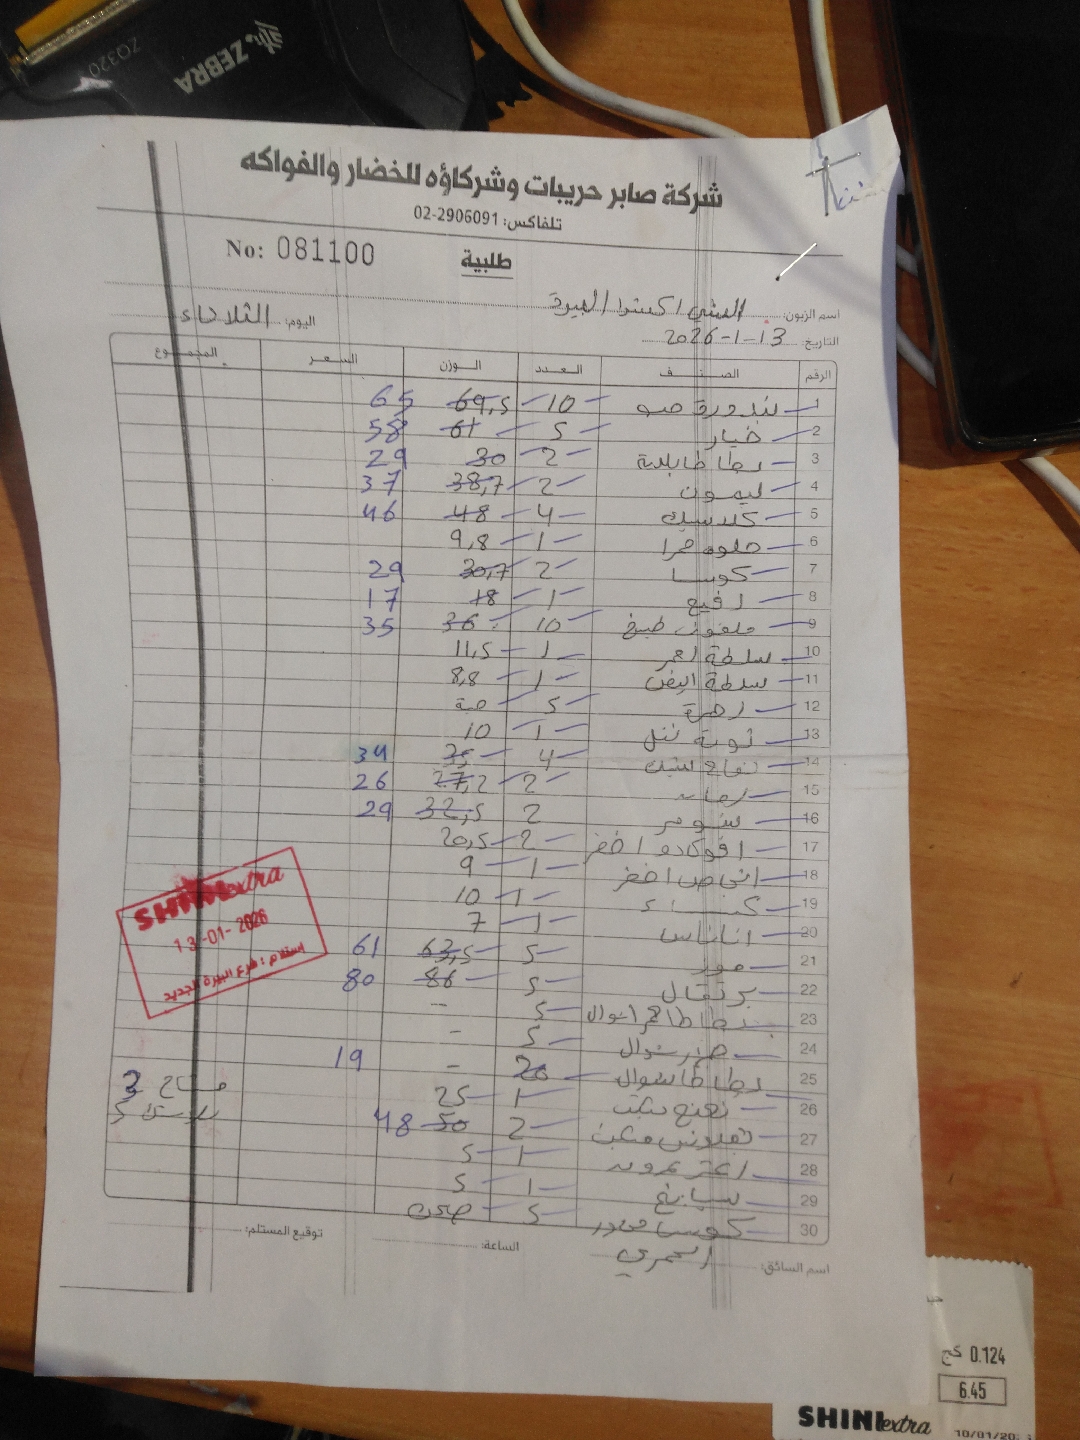 ZQ320
ZEBRA
شركة صابر حريبات وشركاؤه للخضار والفواكه
تلفاكس: 02-2906091
No: 081100
طلبية
اسم الزبون: اكسترا البيرة
اليوم: الثلاثاء
التاريخ: 13-1-2026
الرقم الصنف العدد الوزن السعر المجموع
1 بندورة 10 69,5 65
2 خيار 5 61 58
3 بطاطا بلدية 2 30 29
4 ليمون 2 38,7 37
5 كلاسيك 4 48 46
6 حلوه حمرا 1 9,8
7 كوسا 2 30,7 29
8 1 18 17
9 ملفوف طبخ 10 36 35
10 سلطة احمر 1 11,5
11 سلطة ابيض 1 8,8
12 زهرة 5
13 1 10
14 تفاح 4 35 34
15 2 27,2 26
16 بومر 2 32,5 29
17 افوكادو اخضر 2 20,5
18 اجاص اخضر 1 9
19 1 10
20 اناناس 1 7
21 موز 5 63,5 61
22 برتقال 5 86 80
23 بطاطا شوال 5 --
24 جزر شوال 5 -
25 بطاطا شوال 20 - 19
26 نعنع 1 25
27 2 50 48
28 زعتر 1 5
29 سبانخ 1 5
30 كوسا محفور 5 صحن
اسم السائق: العمري
الساعة:
توقيع المستلم:
SHINI extra
13-01-2026
استلام: فرع البيرة الجديد
0.124 كج
6.45
SHINI extra